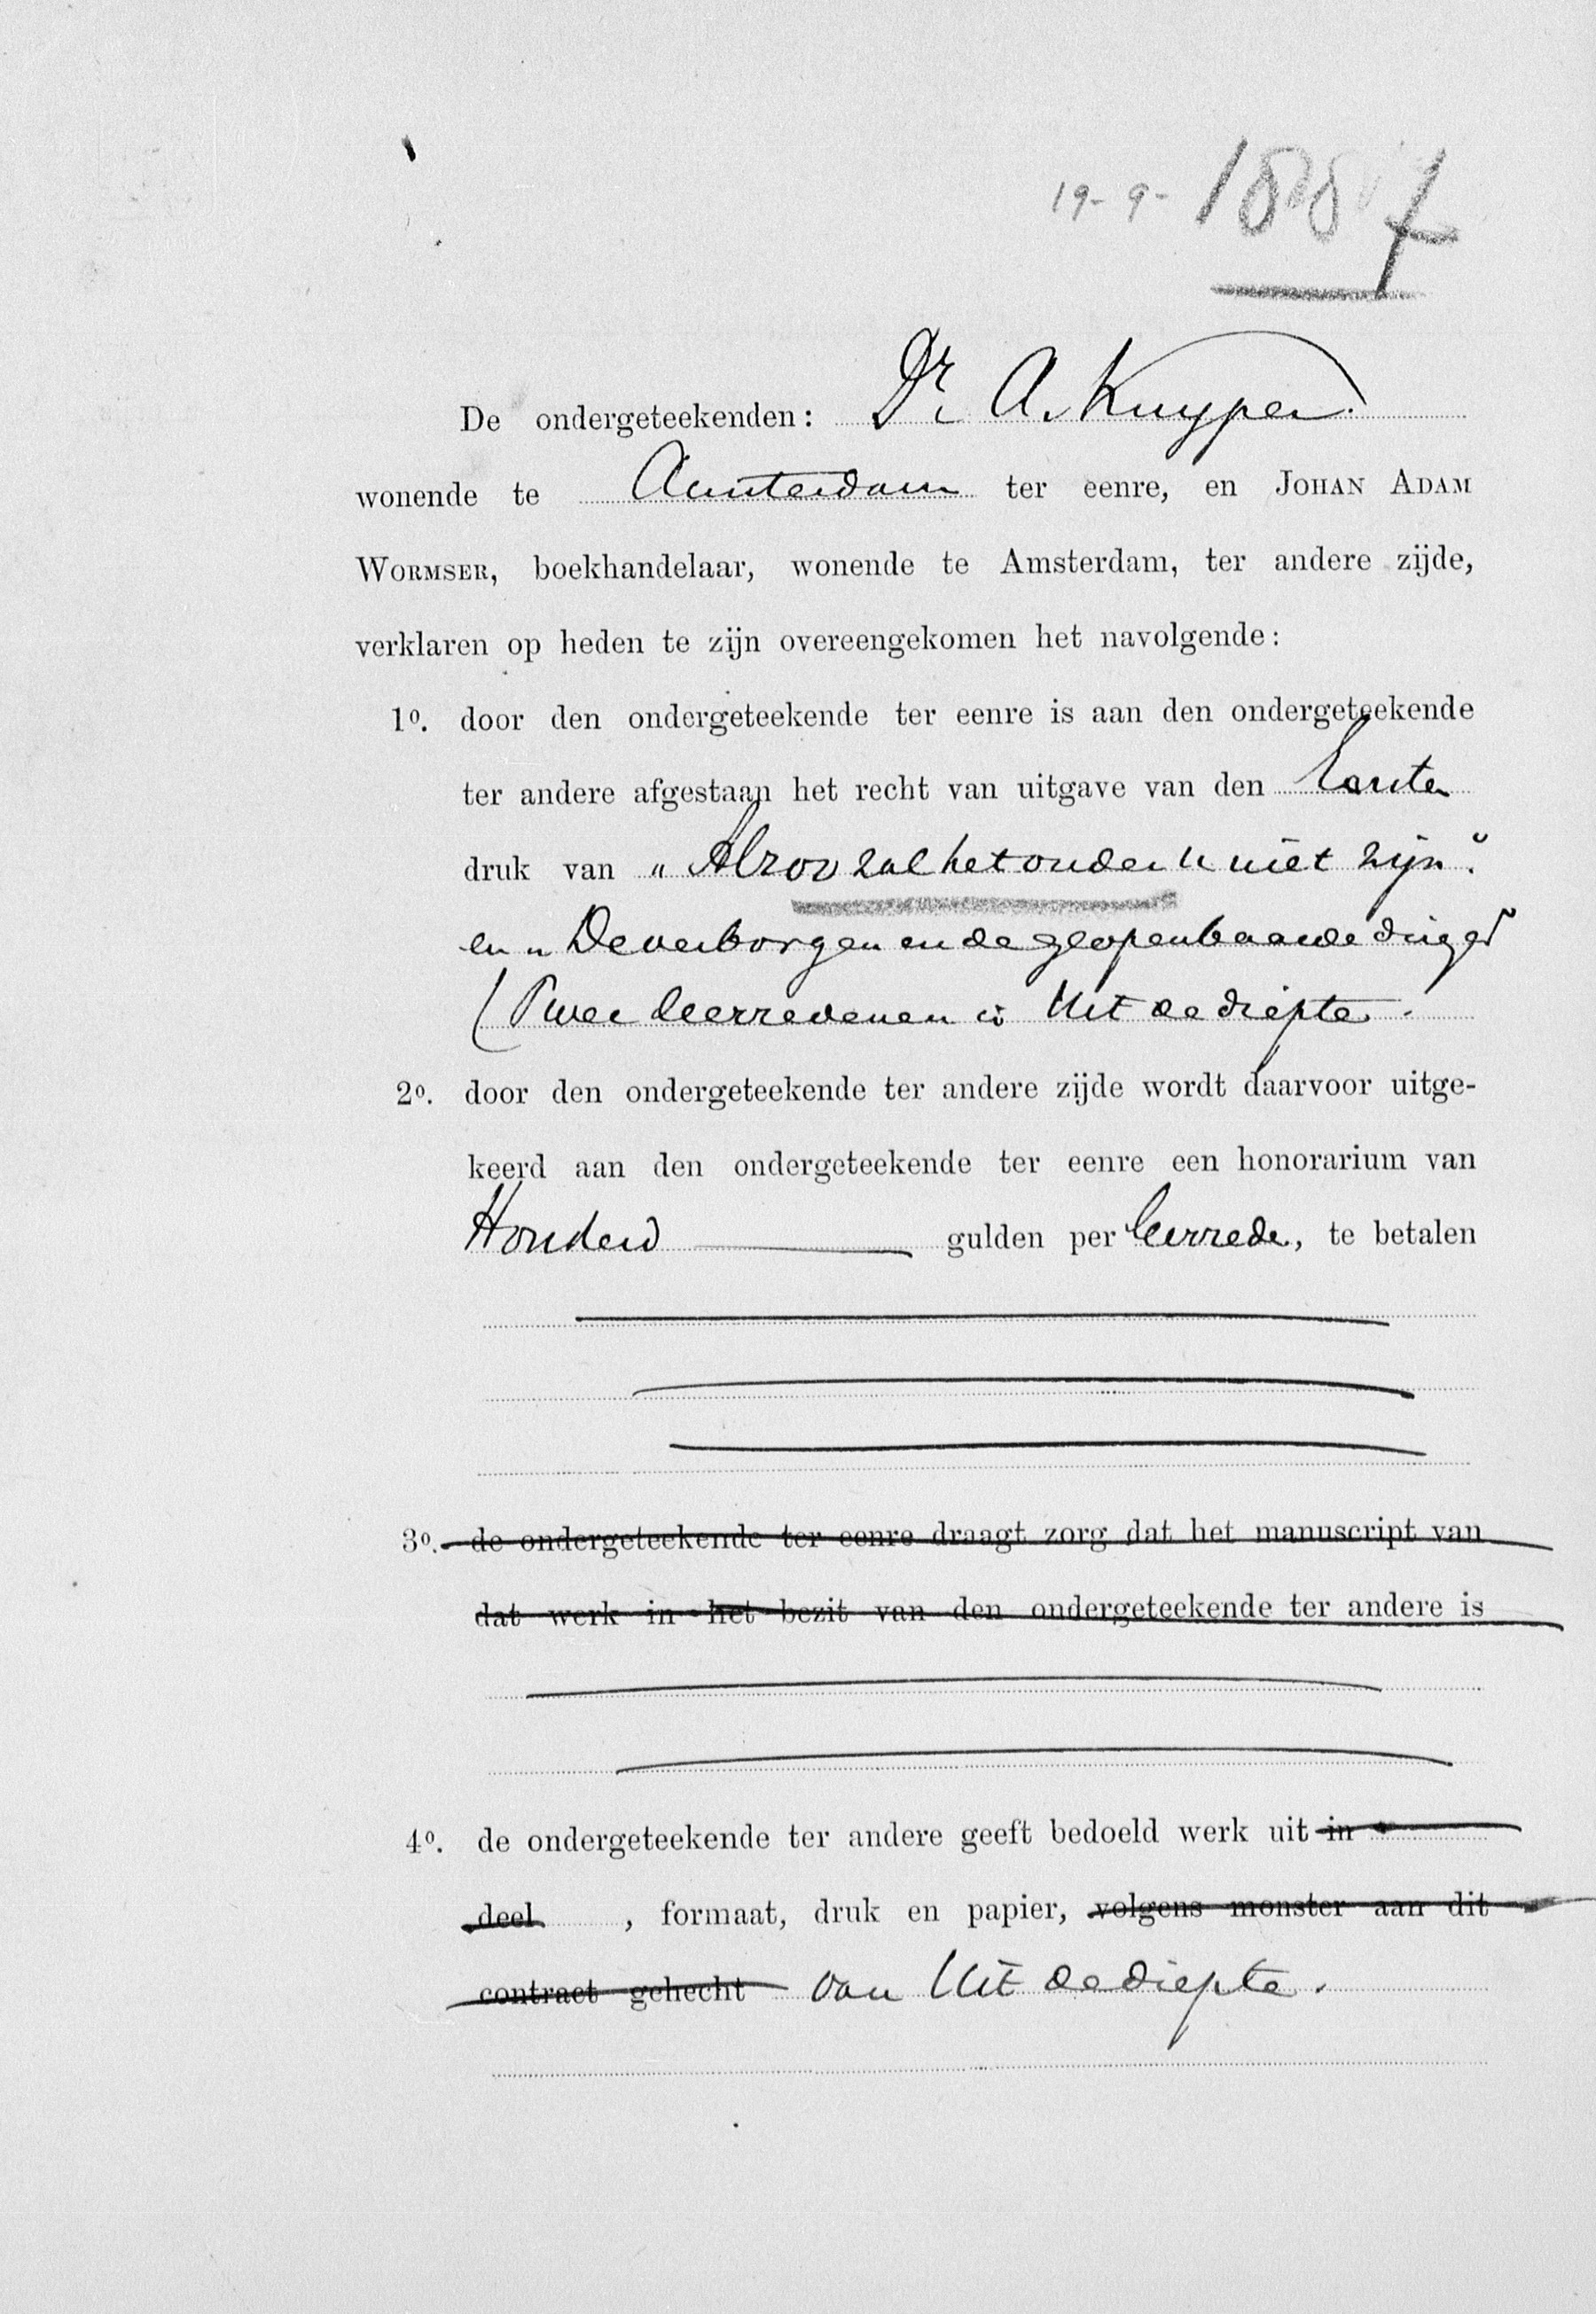 19-9-1887
De ondergeteekenden: Dr. A. Kuyper.
wonende te Amsterdam ter eenre, en JOHAN ADAM
WORMSER, boekhandelaar, wonende te Amsterdam, ter andere zijde,
verklaren op heden te zijn overeengekomen het navolgende:
1o. door den ondergeteekende ter eenre is aan den ondergeteekende
ter andere afgestaan het recht van uitgave van den Eersten
druk van „Alzoo zal het onder u niet zijn".
en „De verborgen en de geopenbaarde dingen"
(Twee leerredenen in Uit de diepte.
2o. door den ondergeteekende ter andere zijde wordt daarvoor uitge-
keerd aan den ondergeteekende ter eenre een honorarium van
Honderd gulden per leerrede, te betalen
3o. de ondergeteekende ter eenre draagt zorg dat het manuscript van
dat werk in het bezit van den ondergeteekende ter andere is
4o. de ondergeteekende ter andere geeft bedoeld werk uit in
deel , formaat, druk en papier, volgens monster aan dit
contract gehecht van Uit de diepte.